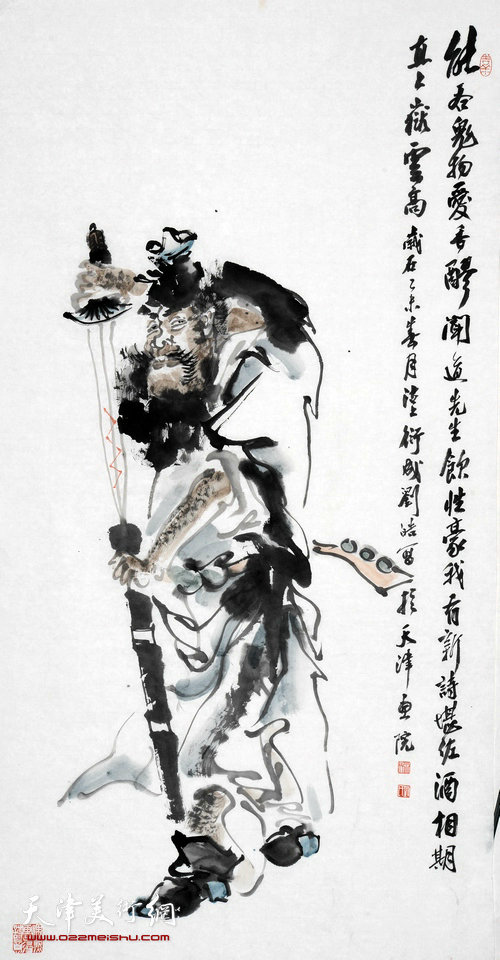 能吞鬼物愛香醪聞道先生飲性豪我有新詩堪佐酒相期
直上嶽雲高 歲在乙未春月津上衍成劉皓寫於天津畫院
天津美術網
www.022meishu.com